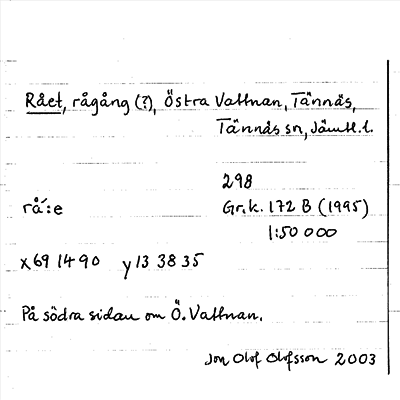 Rået, rågång (?), Östra Vattnan, Tännäs,
Tännäs sn, Jämtl. l.
298
rå´:e Gr. k. 172 B (1995)
1:50 000
x 69 14 90 y 13 38 35
På södra sidan om Ö. Vattnan.
Jon Olof Olofsson 2003